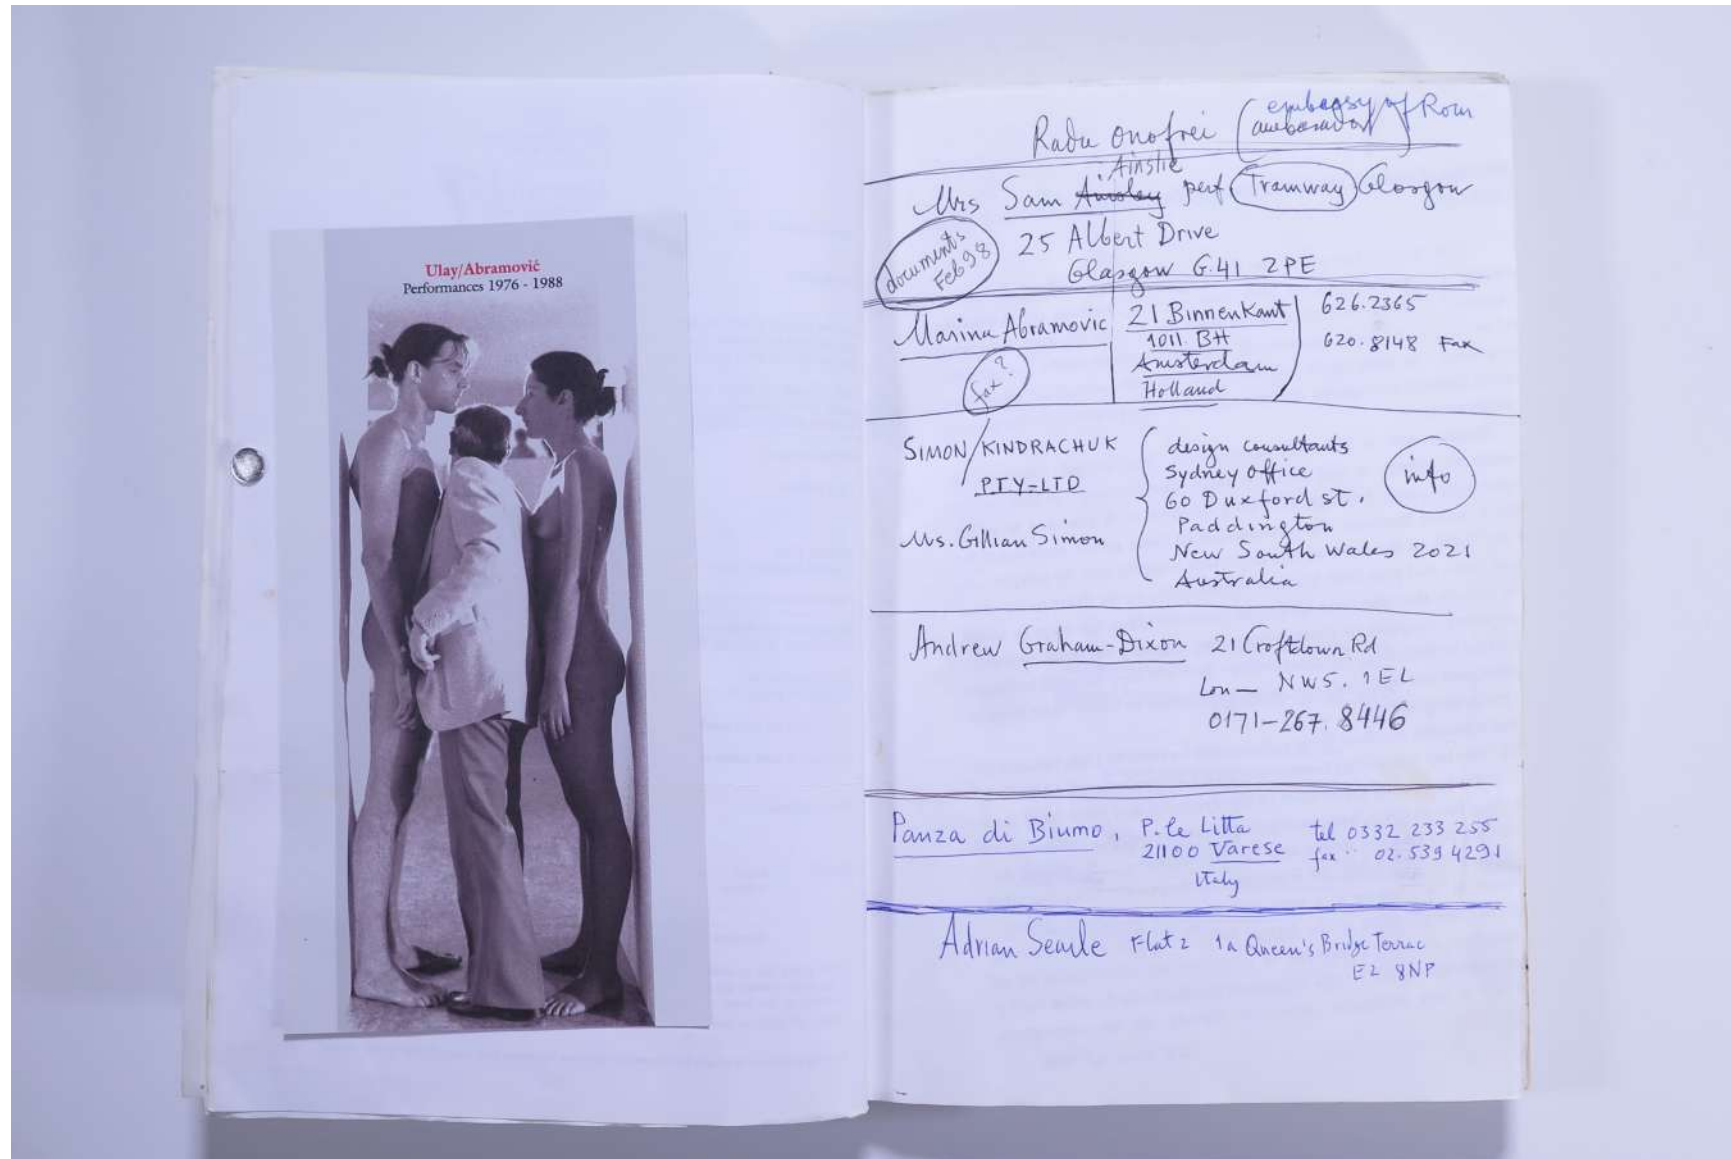 Ulay/Abramović
Performances 1976 - 1988
Radu Onofrei (embassy of Rom
ambasador
Ainslie
Mrs Sam Ainsley perf Tramway Glasgow
documents
Feb 98
25 Albert Drive
Glasgow G.41 2PE
Marina Abramovic
fax?
21 Binnenkant
1011. BH
Amsterdam
Holland
626.2365
620.8148 Fax
SIMON/KINDRACHUK
PTY-LTD
Ms. Gillian Simon
design consultants
Sydney office
60 Duxford st.
Paddington
New South Wales 2021
Australia
info
Andrew Graham-Dixon 21 Croftdown Rd
Lon— NW5. 1EL
0171-267. 8446
Panza di Biumo, P. le Litta tel 0332 233 255
21100 Varese fax " 02. 539 4291
Italy
Adrian Searle Flat 2 1a Queen's Bridge Terrac
E2 8NP